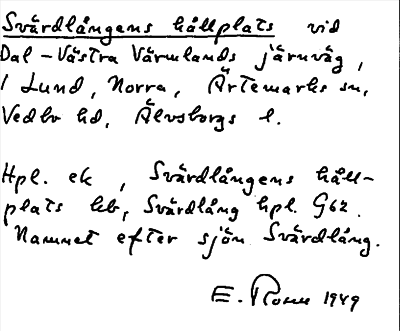 Svärdlångens hållplats vid
Dal-Västra Värmlands järnväg,
i Lund, Norra, Ärtemarks sn,
Vedbo hd, Älvsborgs l.
Hpl. ek, Svärdlångens håll-
plats kb, Svärdlång hpl. G62.
Namnet efter sjön Svärdlång.
E. 1949